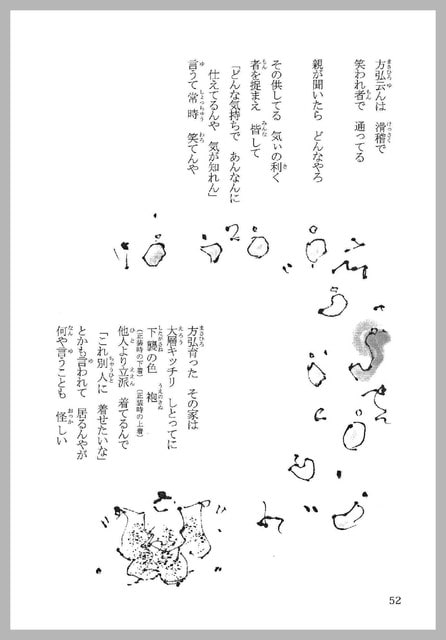 方弘云んは 滑稽で
笑われ者で 通ってる
親が聞いたら どんなやろ
その供してる 気ぃの利く
者を捉まえ 皆して
「どんな気持ちで あんなんに
仕えてるんや 気が知れん」
言うて常時 笑てんや
方弘育った その家は
大層キッチリ しとってに
下襲の色 袍
(正装時の下着) (正装時の上着)
他人より立派 着てるんで
「これ別人に 着せたいな」
とかも言われて 居るんやが
何や言うことも 怪しい
52